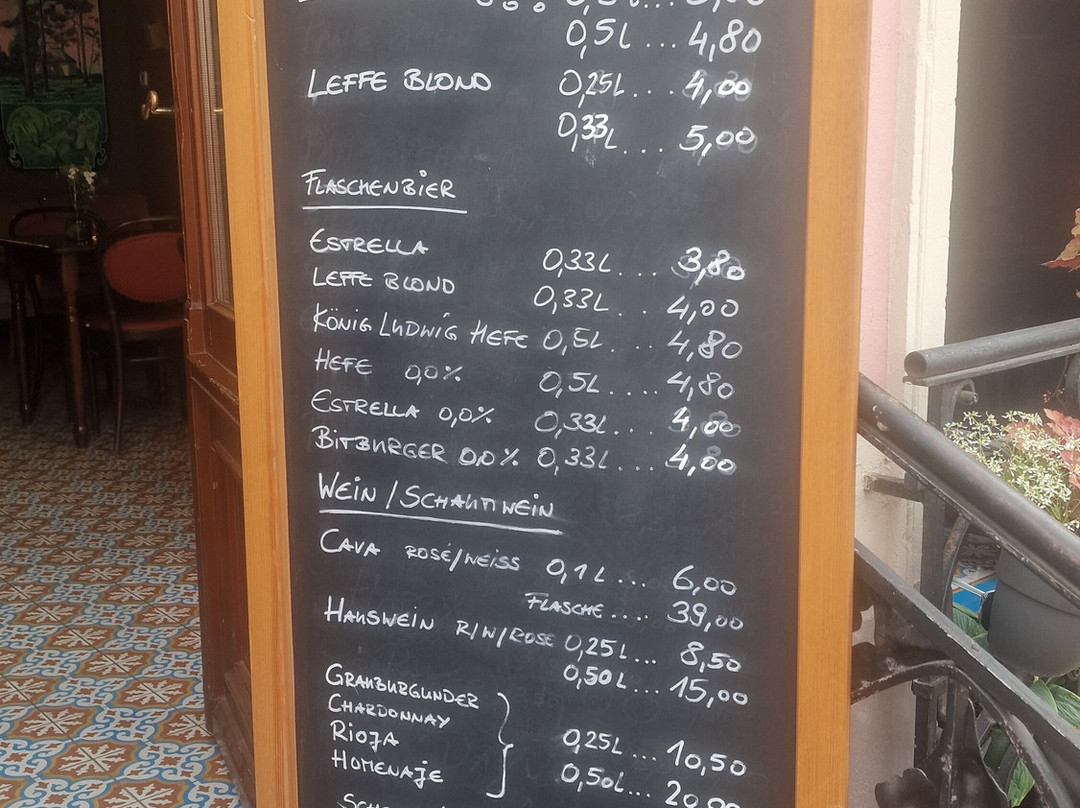 0,5L ... 4,80
LEFFE BLOND 0,25L ... 4,00
0,33L ... 5,00
FLASCHENBIER
ESTRELLA 0,33L .... 3,80
LEFFE BLOND 0,33L .... 4,00
KÖNIG LUDWIG HEFE 0,5L .... 4,80
HEFE 0,0% 0,5L .... 4,80
ESTRELLA 0,0% 0,33L .... 4,00
BITBURGER 0,0% 0,33L .... 4,00
WEIN / SCHAUMWEIN
CAVA ROSÉ/WEISS 0,1L ... 6,00
FLASCHE .... 39,00
HAUSWEIN R/W/ROSE 0,25L ... 8,50
0,50L ... 15,00
GRAUBURGUNDER
CHARDONNAY
RIOJA 0,25L ... 10,50
HOMENAJE 0,50L ... 20,00